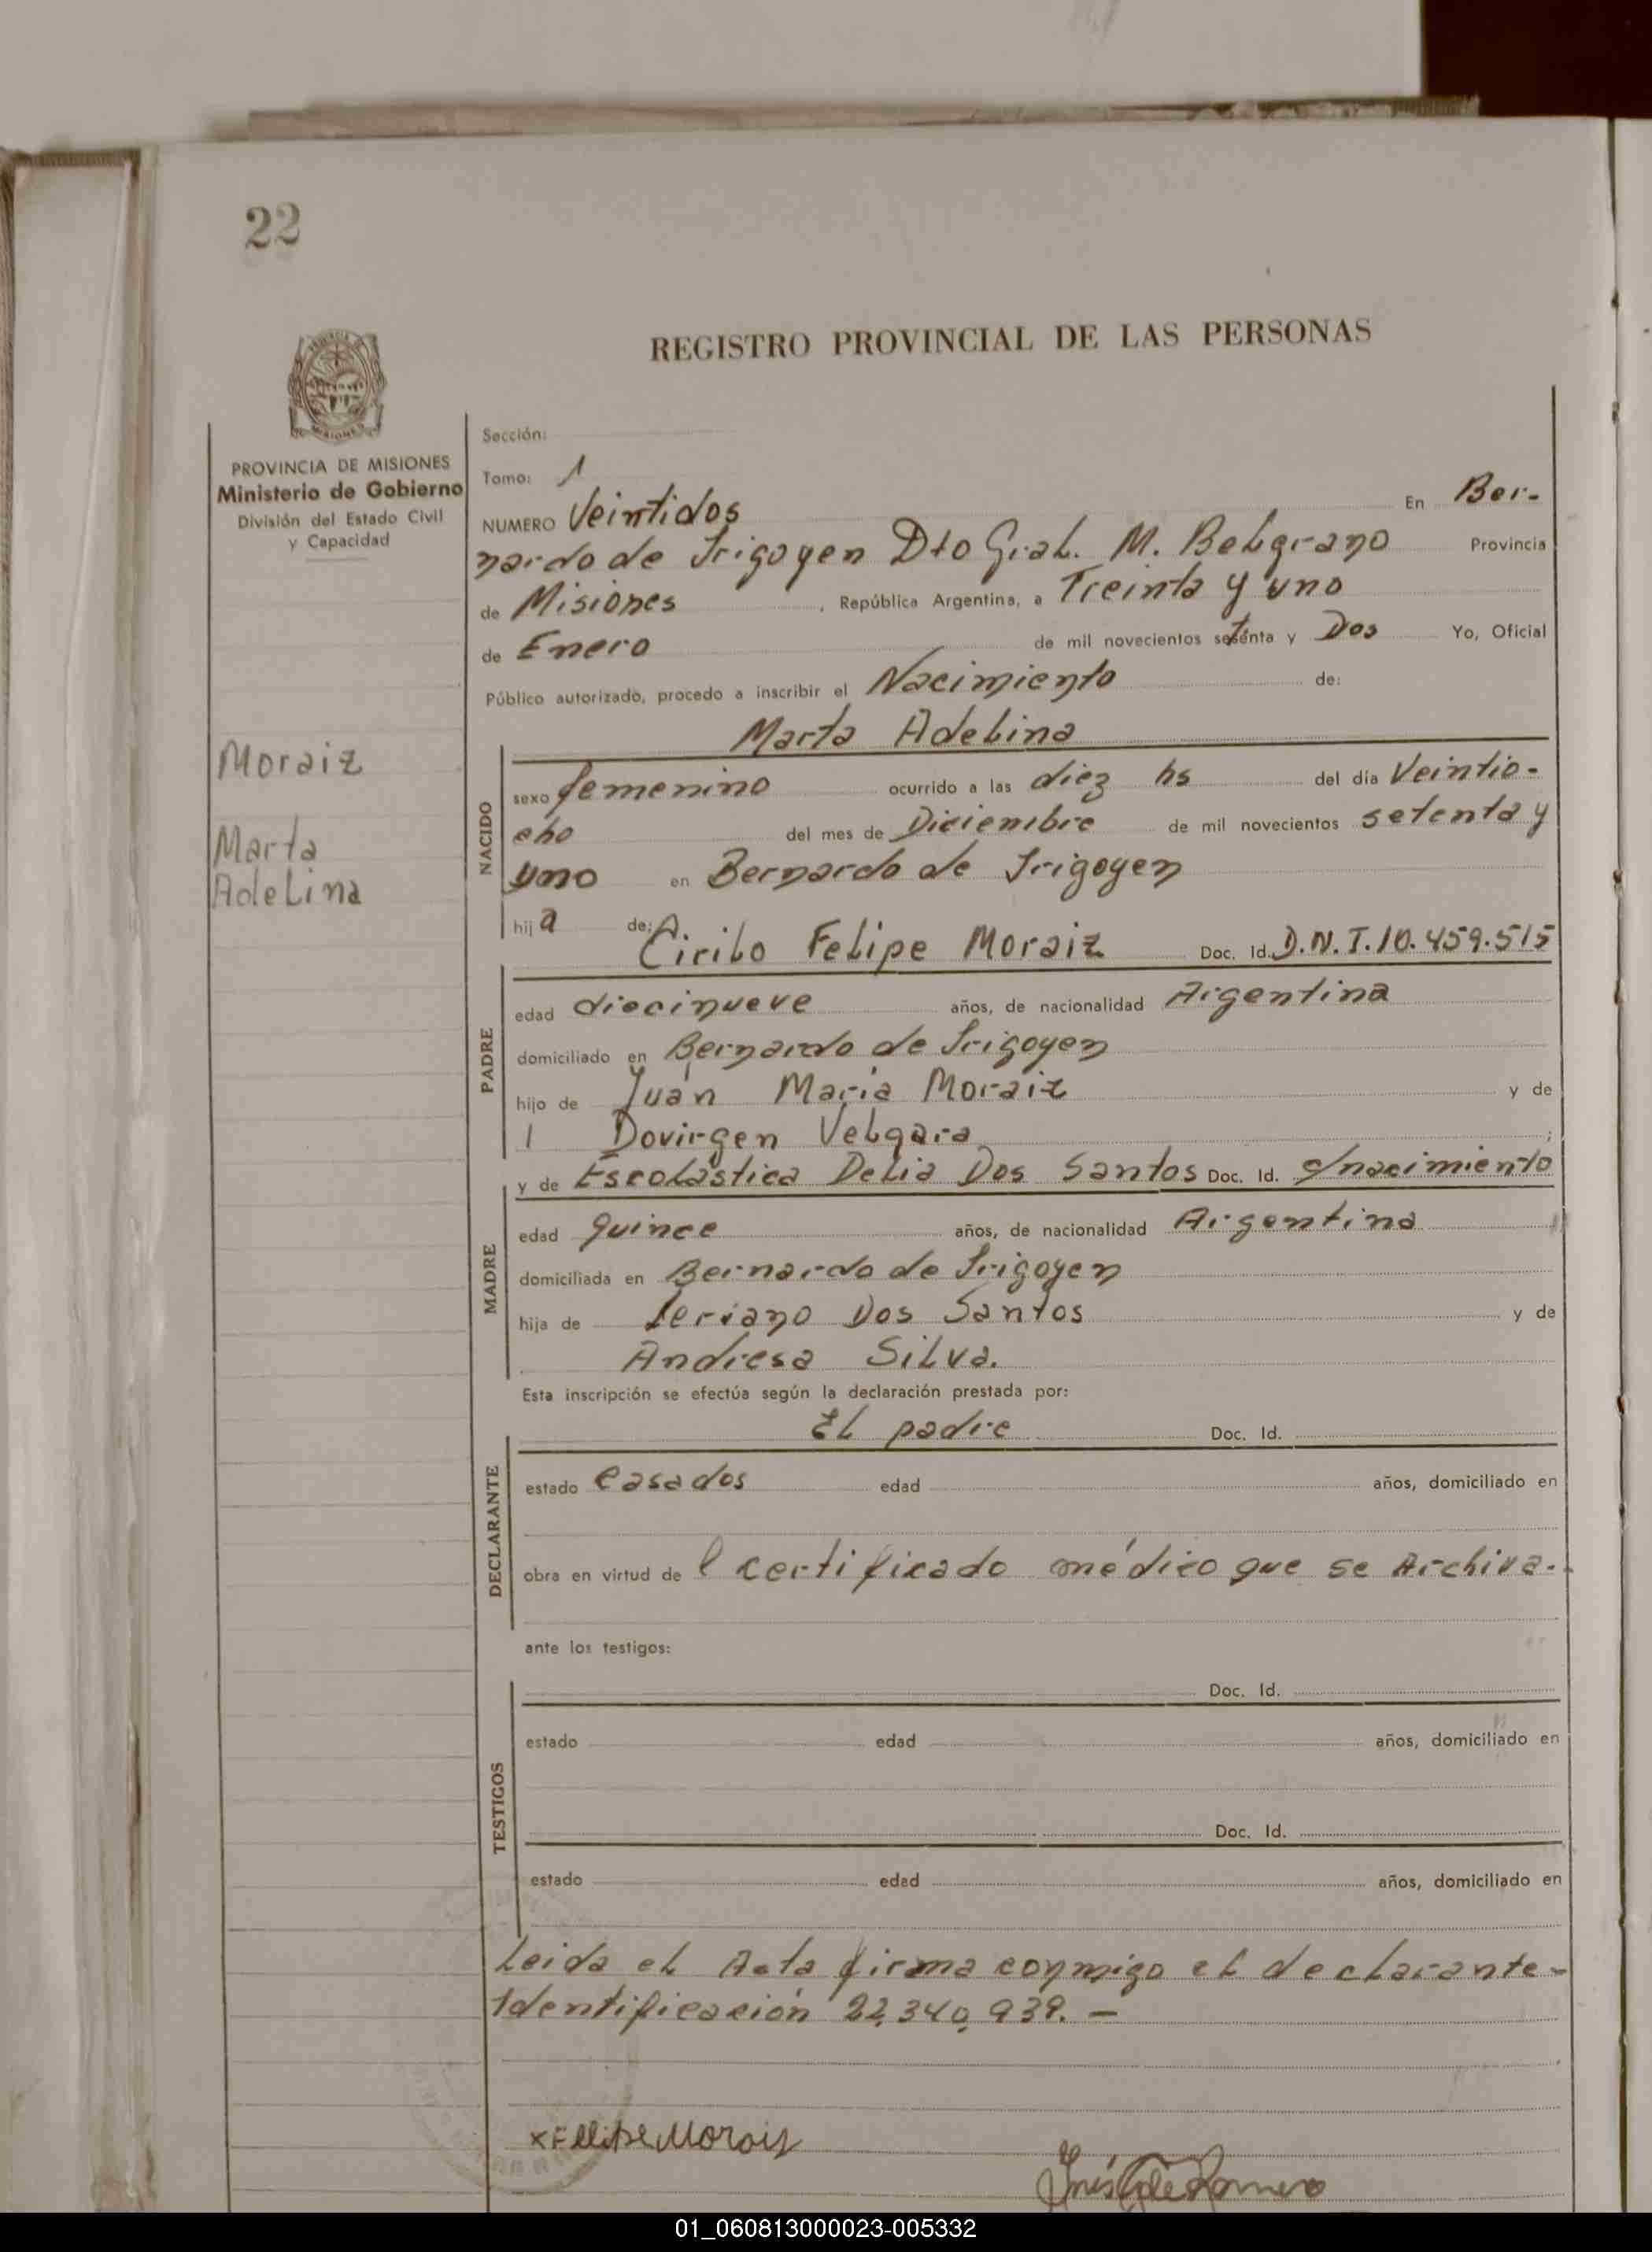 22
REGISTRO PROVINCIAL DE LAS PERSONAS
PROVINCIA DE MISIONES
Ministerio de Gobierno
División del Estado Civil
y Capacidad
Moraiz
Marta
Adelina
Sección:
Tomo: 1
NUMERO Veintidos En Ber-
nardo de Irigoyen Dto Gral. M. Belgrano Provincia
de Misiones, República Argentina, a Treinta y uno
de Enero de mil novecientos setenta y Dos Yo, Oficial
Público autorizado, procedo a inscribir el Nacimiento de:
Marta Adelina
NACIDO
sexo femenino ocurrido a las diez hs del día Veintio-
cho del mes de Diciembre de mil novecientos setenta y
uno en Bernardo de Irigoyen
hija de:
Cirilo Felipe Moraiz Doc. Id. D.N.I. 10.459.515
PADRE
edad diecinueve años, de nacionalidad Argentina
domiciliado en Bernardo de Irigoyen
hijo de Juan Maria Moraiz y de
Dovirgen Velgara ;
y de Escolástica Delia Dos Santos Doc. Id. c/nacimiento
MADRE
edad quince años, de nacionalidad Argentina
domiciliada en Bernardo de Irigoyen
hija de Dos Santos y de
Andresa Silva.
Esta inscripción se efectúa según la declaración prestada por:
El padre Doc. Id.
DECLARANTE
estado Casados edad años, domiciliado en
obra en virtud de l certificado médico que se Archiva.-
ante los testigos:
Doc. Id.
TESTIGOS
estado edad años, domiciliado en
Doc. Id.
estado edad años, domiciliado en
Leida el Acta firma conmigo el declarante-
Identificación 22,340,939. -
x Morais
Inés de Romero
01_060813000023-005332